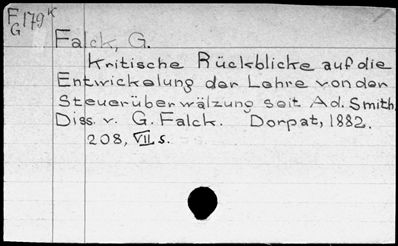 F 179 K
G
Falck, G.
Kritische Rückblicke auf die
Entwickelung der Lehre von der
Steuerüberwälzung seit Ad. Smith,
Diss. v. G. Falck. Dorpat, 1882.
208, VII s.